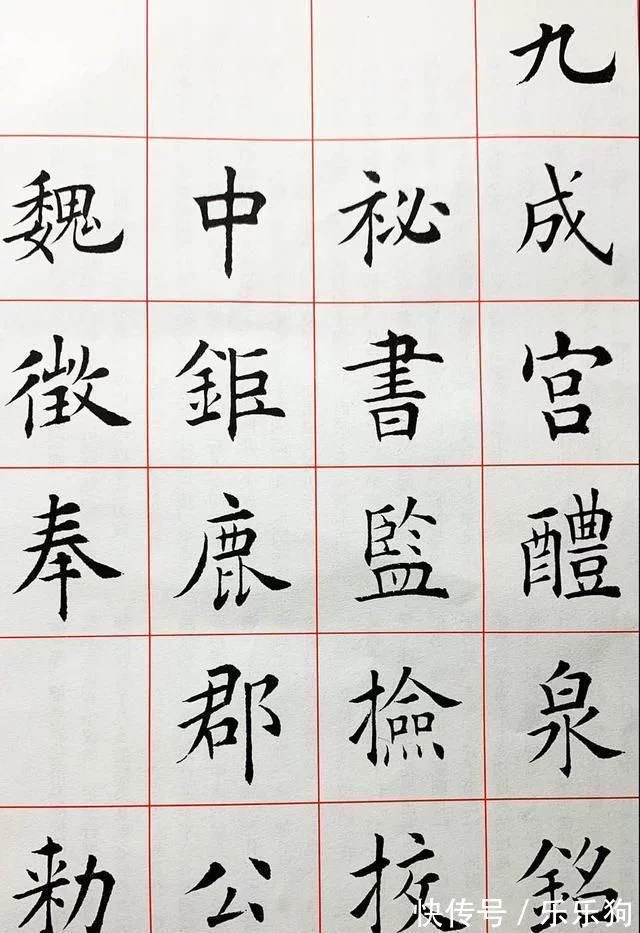 九成宫醴泉銘
祕書監撿挍
中鉅鹿郡公
魏徵奉 勑
快传号/乐乐狗